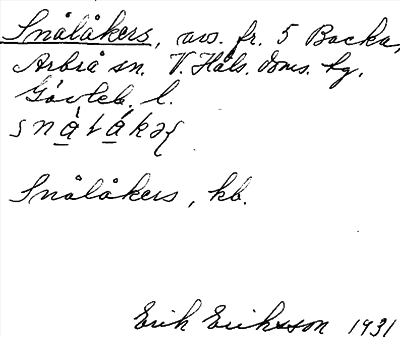 Snålåkers, avs. fr. 5 Backa,
Arbrå sn. V. Häls. doms. hg.
Gävleb. l.
Snålåkers, kb.
Erik Eriksson 1931